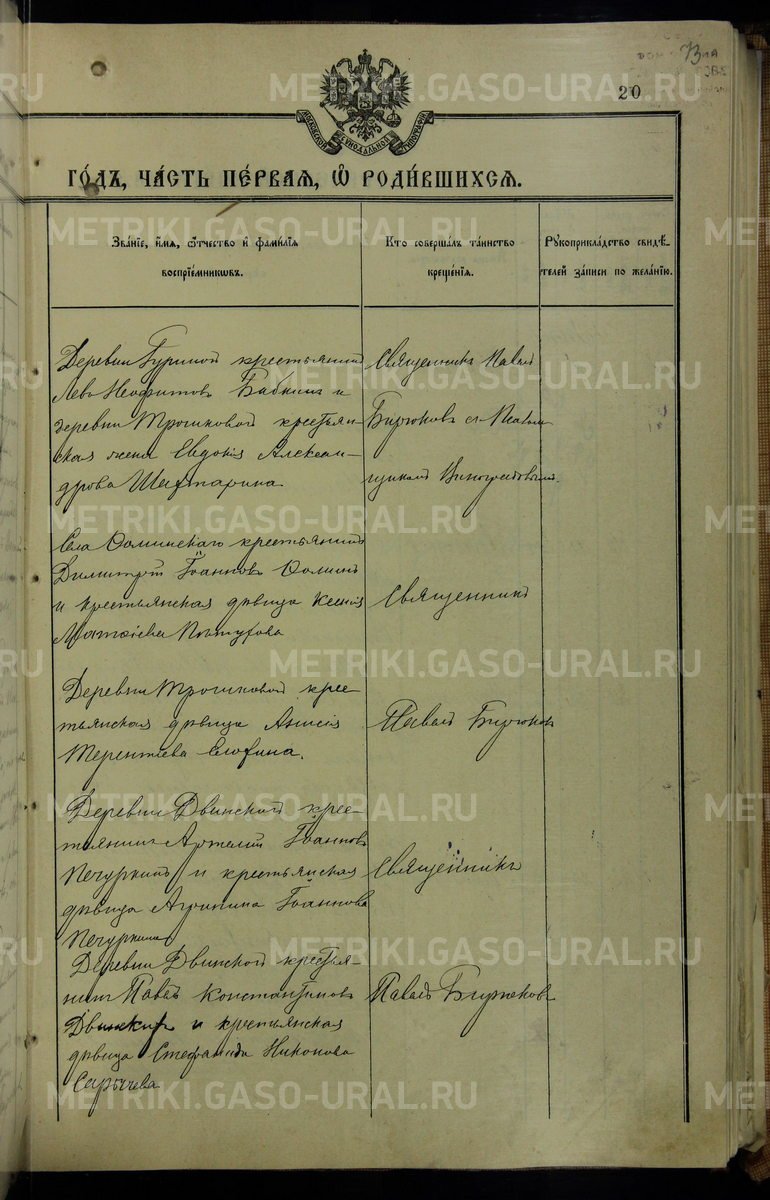 73
20
МОСКОВСКОЙ СѴНОДАЛЬНОЙ ТИПОГРАФІИ
ГО́ДЪ, ЧА́СТЬ ПЕ́РВАѦ, Ѽ РОДИ́ВШИХСѦ.
Зва́нїе, и́мѧ, ѻ҆́тчество и҆ фами́лїѧ
воспрїе́мникѡвъ.
Кто соверша́лъ та́инство
креще́нїѧ.
Рꙋкоприкла́дство свидѣ́-
телей за́писи по жела́нїю.
Деревни Гуриной крестьянинъ
Левъ Неофитовъ Бабкинъ и
деревни Трошковой крестьян-
ская жена Евдокія Алексан-
дрова Шахтарина.
Священникъ Павелъ
Бирюковъ съ Псалом-
щикомъ Виноградовымъ.
Села крестьянинъ
Димитрій Іоанновъ
и крестьянская дѣвица Ксенія
Матѳіева
Священникъ
Деревни Трошковой крес-
тьянская дѣвица Анисія
Терентіева
Павелъ Бирюковъ
Деревни Двинской крес-
тьянинъ Артемій Іоанновъ
Печуркинъ и крестьянская
дѣвица Агрипина Іоаннова
Печуркина
Священникъ
Деревни Двинской крестья-
нинъ Павелъ Константиновъ
Двинскихъ и крестьянская
дѣвица Стефанида Никонова
Сарычева
Павелъ Бирюковъ
METRIKI.GASO-URAL.RU